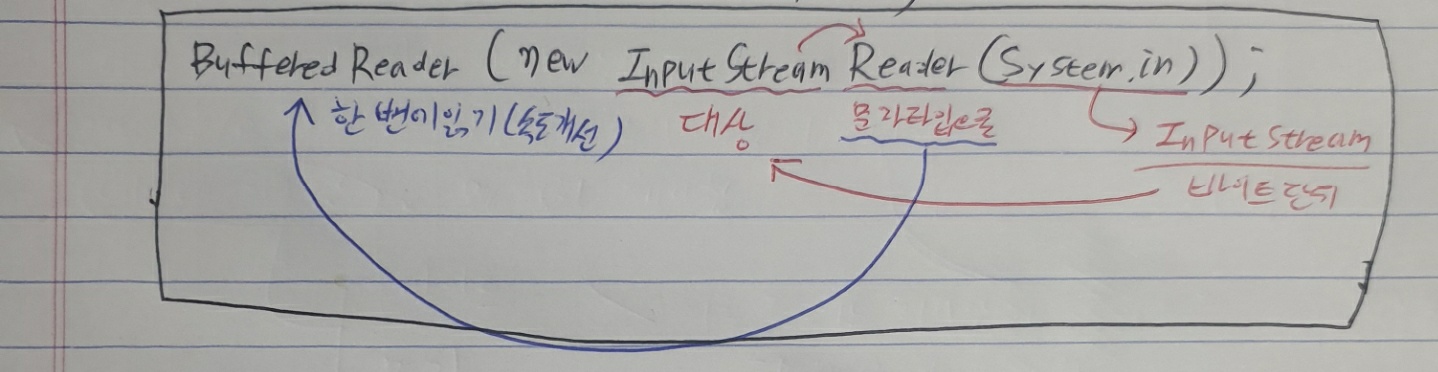 Buffered Reader (new InputStream Reader (System.in));
한번에읽기(속도개선) 대상 문자타입으로 InPut Stream
바이트단위